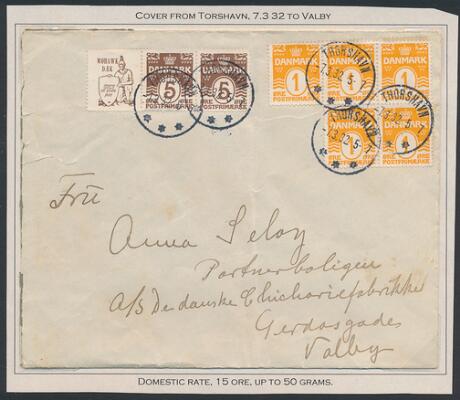 COVER FROM TORSHAVN, 7.3 32 TO VALBY
MOHAWK
DÆK
DANMARK
5
ØRE
POSTFRIMÆRKE
DANMARK
5
ØRE
POSTFRIMÆRKE
DANMARK
1
ØRE
POSTFRIMÆRKE
DANMARK
1
DANMARK
1
DANMARK
1
ØRE
POSTFRIMÆRKE
DANMARK
ØRE
POSTFRIMÆRKE
THORSHAVN
7.3.32.5-
THORSHAVN
7.3.32.5-
THORSHAVN
Fru
Anna Seloy
Partnerboligen
A/S De danske Cichoriefabrikker
Gerdasgades
Valby
DOMESTIC RATE, 15 ORE, UP TO 50 GRAMS.